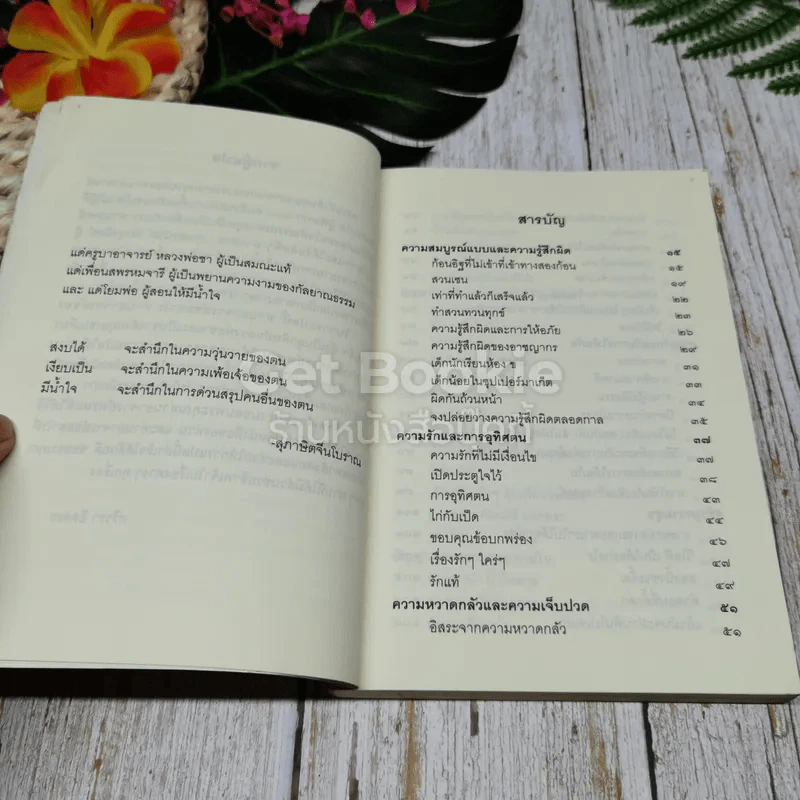 แด่ครูบาอาจารย์ หลวงพ่อชา ผู้เป็นสมณะแท้
แด่เพื่อนสพรหมจารี ผู้เป็นพยานความงามของกัลยาณธรรม
และ แด่โยมพ่อ ผู้สอนให้มีน้ำใจ
สงบได้ จะสำนึกในความวุ่นวายของตน
เงียบเป็น จะสำนึกในความเพ้อเจ้อของตน
มีน้ำใจ จะสำนึกในการด่วนสรุปคนอื่นของตน
-สุภาษิตจีนโบราณ
สารบัญ
ความสมบูรณ์แบบและความรู้สึกผิด ๑๕
ก้อนอิฐที่ไม่เข้าที่เข้าทางสองก้อน ๑๕
สวนเซน ๑๙
เท่าที่ทำแล้วก็เสร็จแล้ว ๒๒
ทำสวนทวนทุกข์ ๒๓
ความรู้สึกผิดและการให้อภัย ๒๖
ความรู้สึกผิดของอาชญากร ๒๙
เด็กนักเรียนห้อง ข ๓๑
เด็กน้อยในซุปเปอร์มาเก็ต ๓๓
ผิดกันถ้วนหน้า ๓๔
จงปล่อยวางความรู้สึกผิดตลอดกาล ๓๕
ความรักและการอุทิศตน ๓๗
ความรักที่ไม่มีเงื่อนไข ๓๗
เปิดประตูใจไว้ ๓๘
การอุทิศตน ๔๓
ไก่กับเป็ด ๔๔
ขอบคุณข้อบกพร่อง ๔๖
เรื่องรักๆ ใคร่ๆ ๔๗
รักแท้ ๔๙
ความหวาดกลัวและความเจ็บปวด ๕๑
อิสระจากความหวาดกลัว ๕๑
Get Bookie
ร้านหนังสือปีหนี้